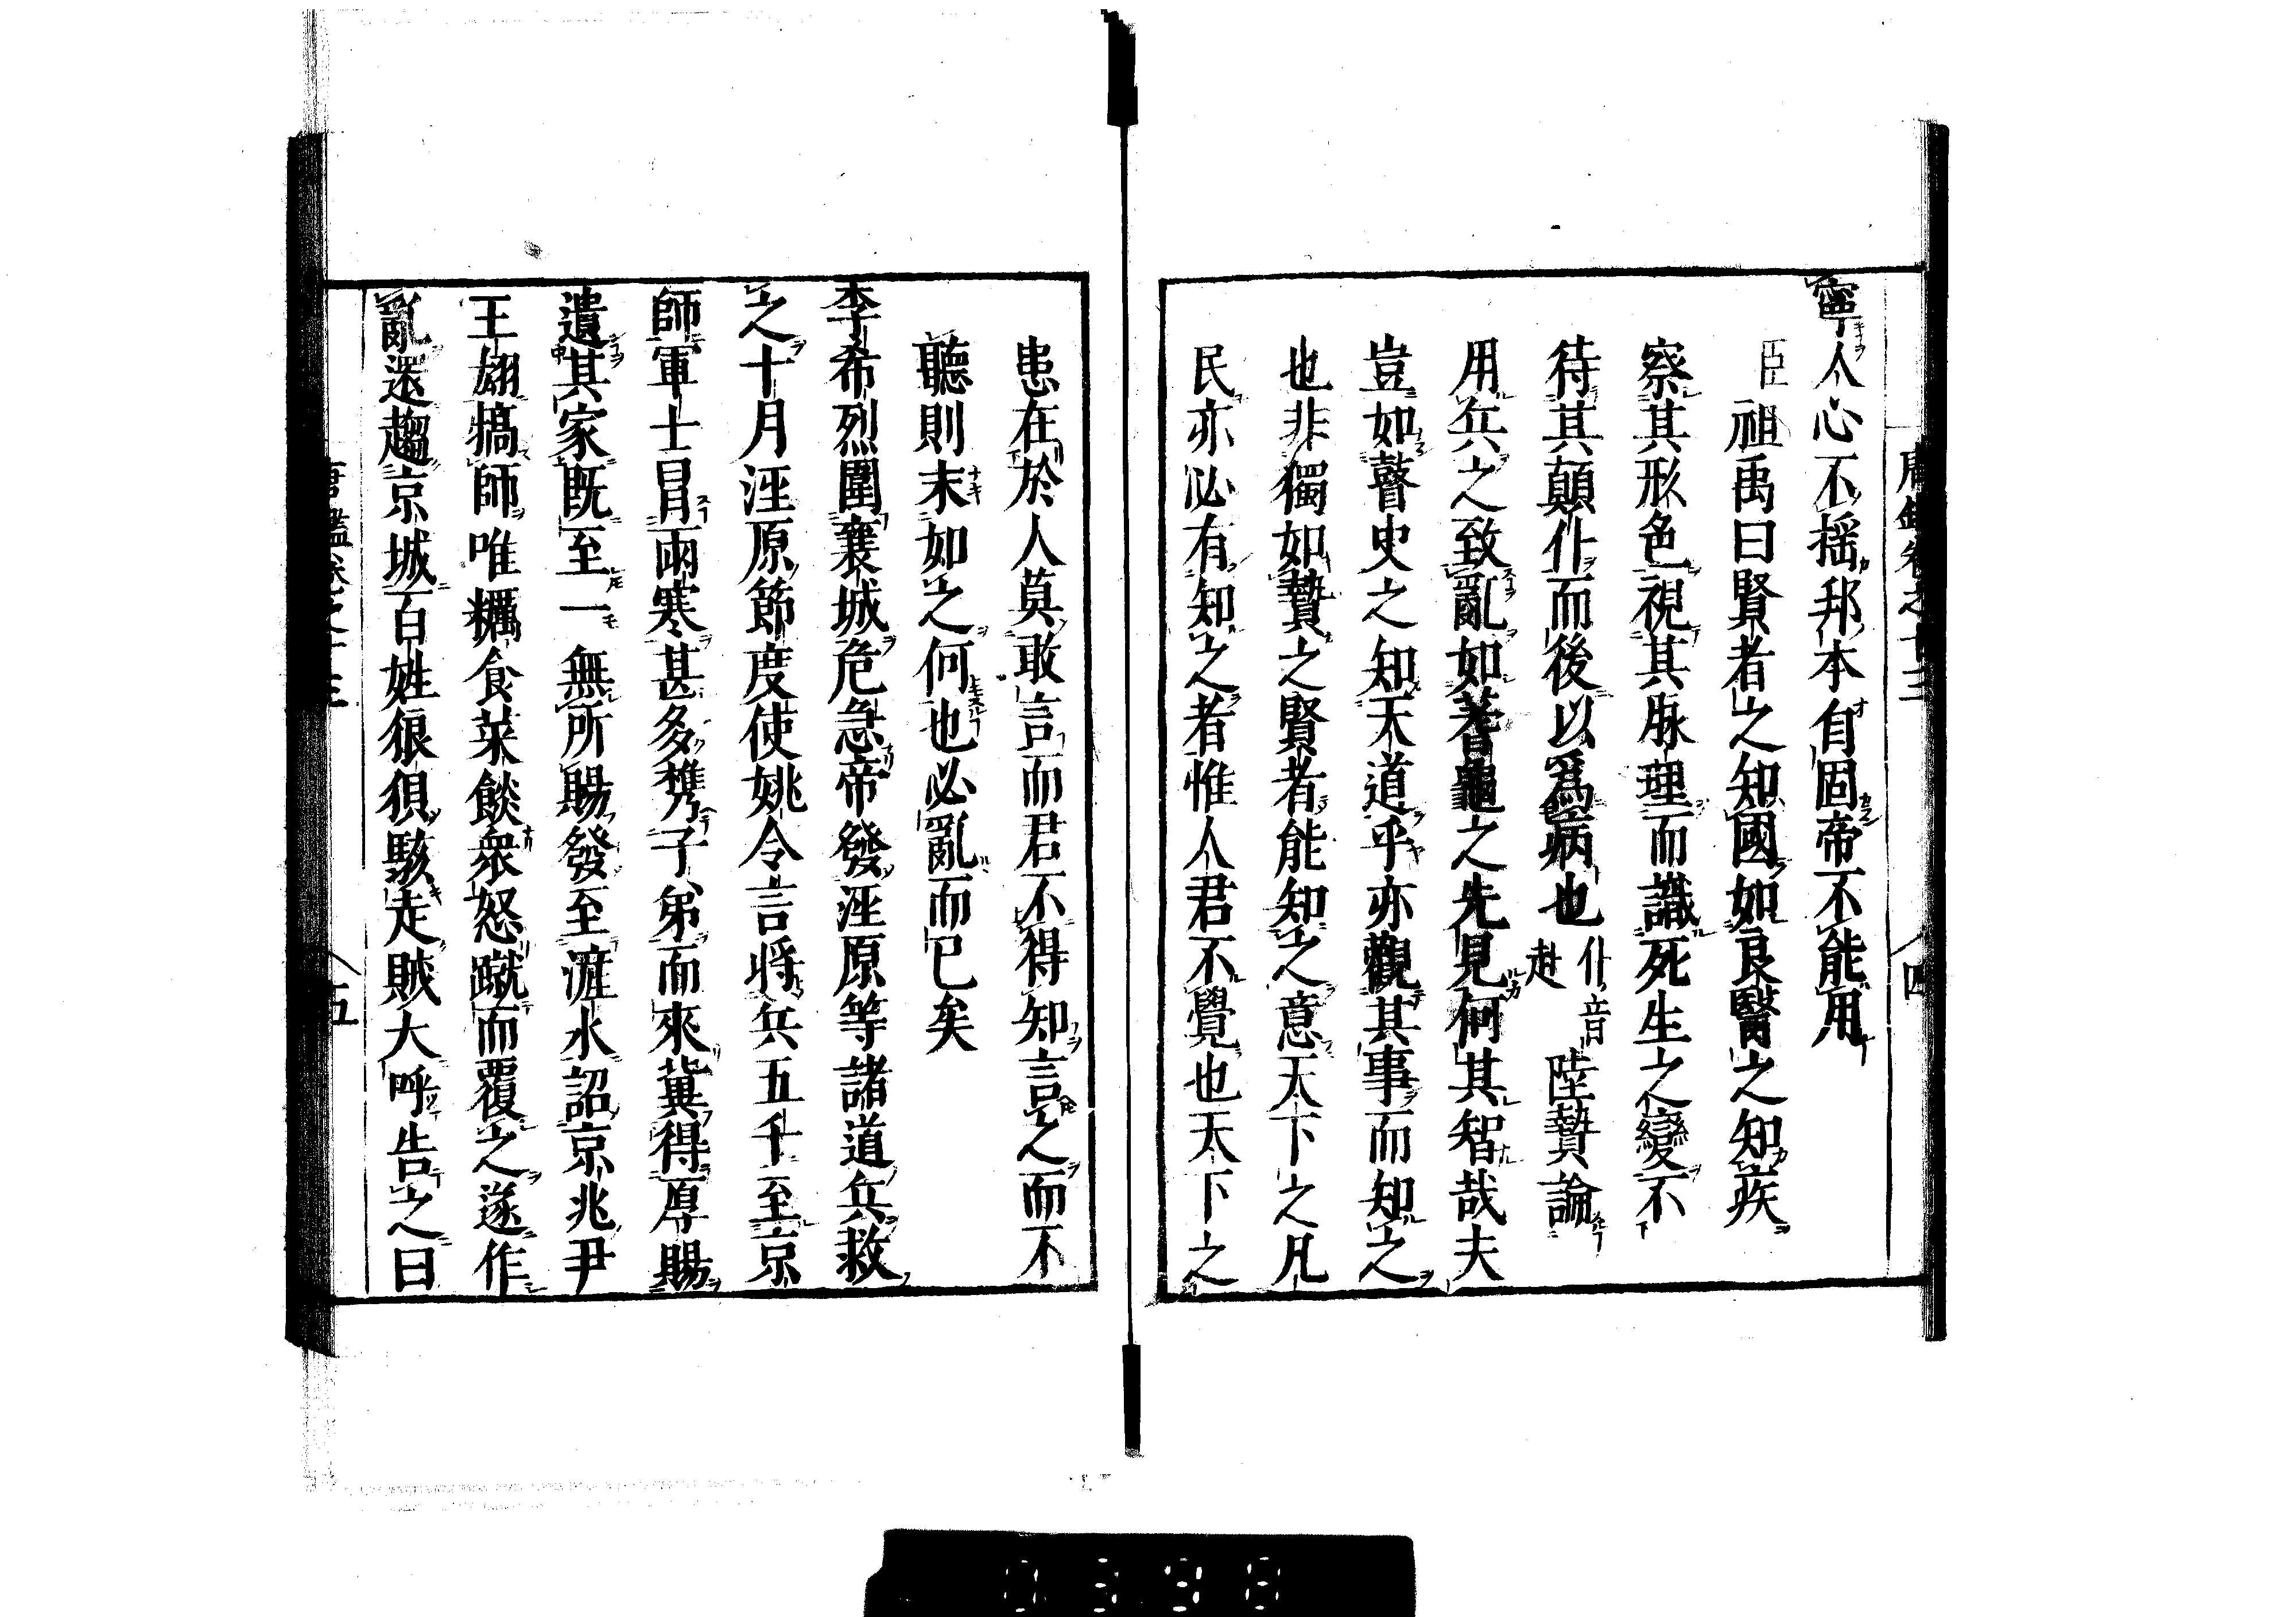 寧人心不揺邦本自固帝不能用
臣祖禹曰賢者之知國如良醫之知疾
察其形色視其脉理而識死生之變不
待其顛仆而後以爲病也仆音赴陸贄論
用兵之致亂如蓍龜之先見何其智哉夫
豈如瞽史之知天道乎亦觀其事而知之
也非獨如贄之賢者能知之意天下之凡
民亦必有知之者惟人君不覺也天下之
患在於人莫敢言而君不得知言之而不
聽則末如之何也必亂而已矣
李希烈圍襄城危急帝發涇原等諸道兵救
之十月涇原節度使姚令言將兵五千至京
師軍士冒雨寒甚多携子弟而來冀得厚賜
遺其家既至一無所賜發至滻水詔京兆尹
王翃犒師唯糲食菜餤衆怒蹴而覆之遂作
亂還趨京城百姓狼狽駭走賊大呼告之曰
唐鑑卷之十三
五
四